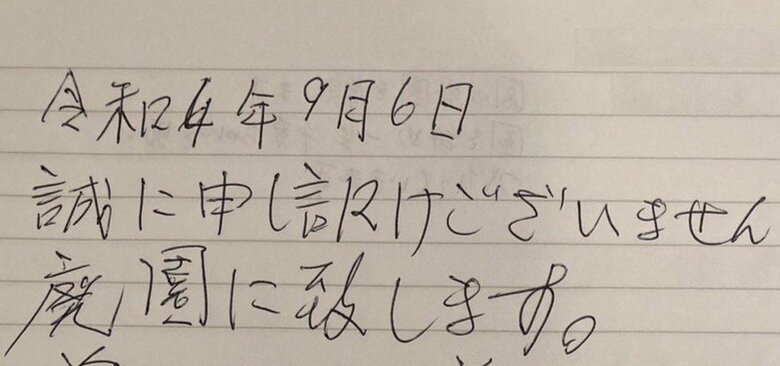 令和4年9月6日
誠に申し訳けございません
廃園に致します。